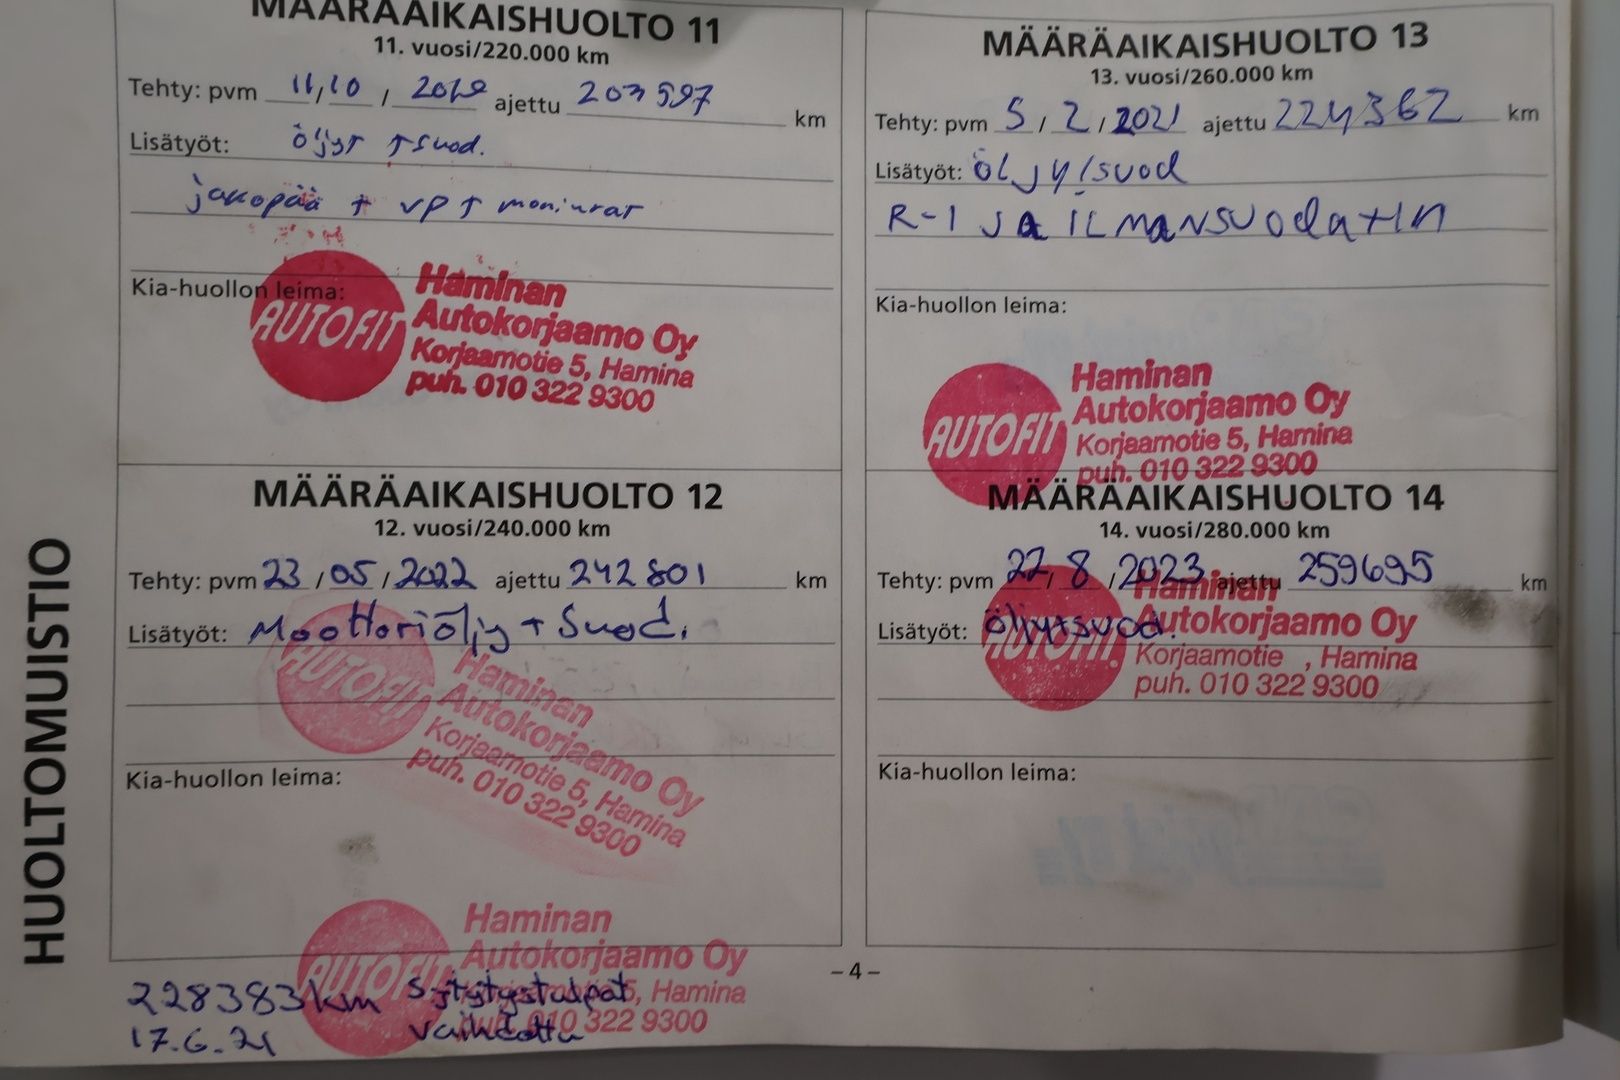 MÄÄRÄAIKAISHUOLTO 11
11. vuosi/220.000 km
Tehty: pvm 11/10 / ajettu 203597 km
Lisätyöt: öljyt + suod.
jakopää + vp + moniurat
Kia-huollon leima:
AUTOFIT
Haminan
Autokorjaamo Oy
Korjaamotie 5, Hamina
puh. 010 322 9300
MÄÄRÄAIKAISHUOLTO 12
12. vuosi/240.000 km
Tehty: pvm 23 / 05 / 2022 ajettu 242801 km
Lisätyöt: Moottoriöljy + Suod.
AUTOFIT
Haminan
Autokorjaamo Oy
Korjaamotie 5, Hamina
puh. 010 322 9300
Kia-huollon leima:
AUTOFIT
Haminan
Autokorjaamo Oy
5, Hamina
010 322 9300
228383km Sytytystulpat
17.6.21 vaihdettu
MÄÄRÄAIKAISHUOLTO 13
13. vuosi/260.000 km
Tehty: pvm 5 / 2 / 2021 ajettu 224362 km
Lisätyöt: öljy/suod
R-1 JA ILMANSUODATIN
Kia-huollon leima:
AUTOFIT
Haminan
Autokorjaamo Oy
Korjaamotie 5, Hamina
puh. 010 322 9300
MÄÄRÄAIKAISHUOLTO 14
14. vuosi/280.000 km
Tehty: pvm 22/ 8 / 2023 ajettu 259695 km
Lisätyöt: öljy+suod.
AUTOFIT
Haminan
Autokorjaamo Oy
Korjaamotie , Hamina
puh. 010 322 9300
Kia-huollon leima:
HUOLTOMUISTIO
– 4 –